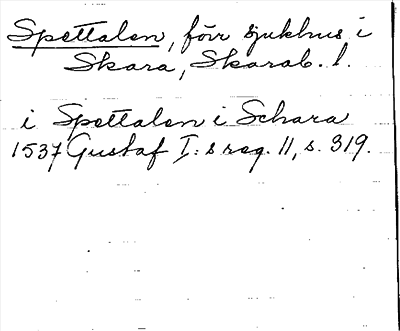 Spettalen, förr sjukhus i
Skara, Skarab. l.
i Spettalen i Schara
1537 Gustaf I:s reg. 11, s. 319.